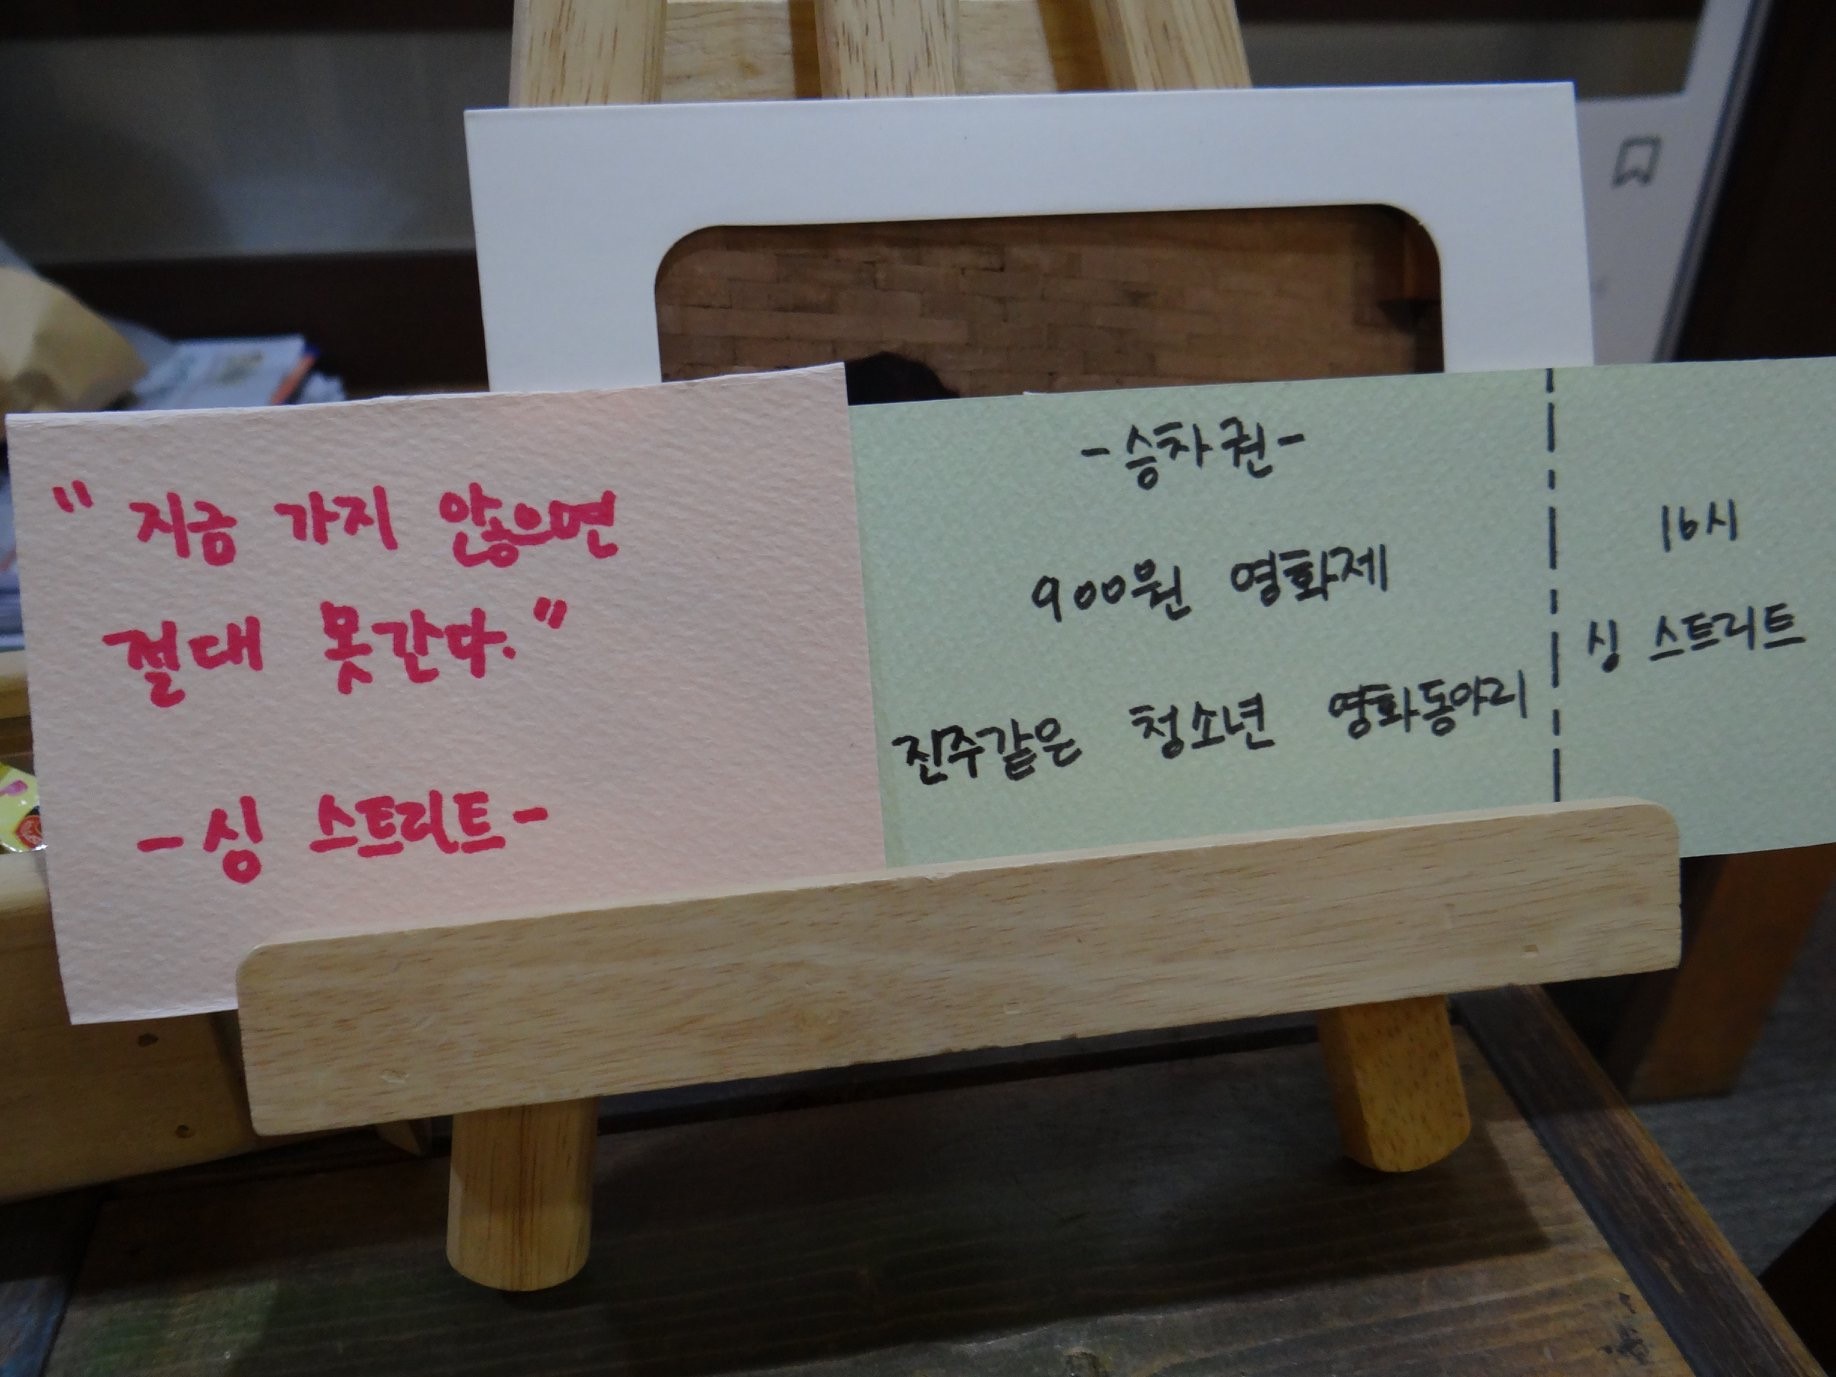 " 지금 가지 않으면
절대 못간다. "
- 싱 스트리트 -
- 승차권 -
900원 영화제
진주같은 청소년 영화동아리
16시
싱 스트리트